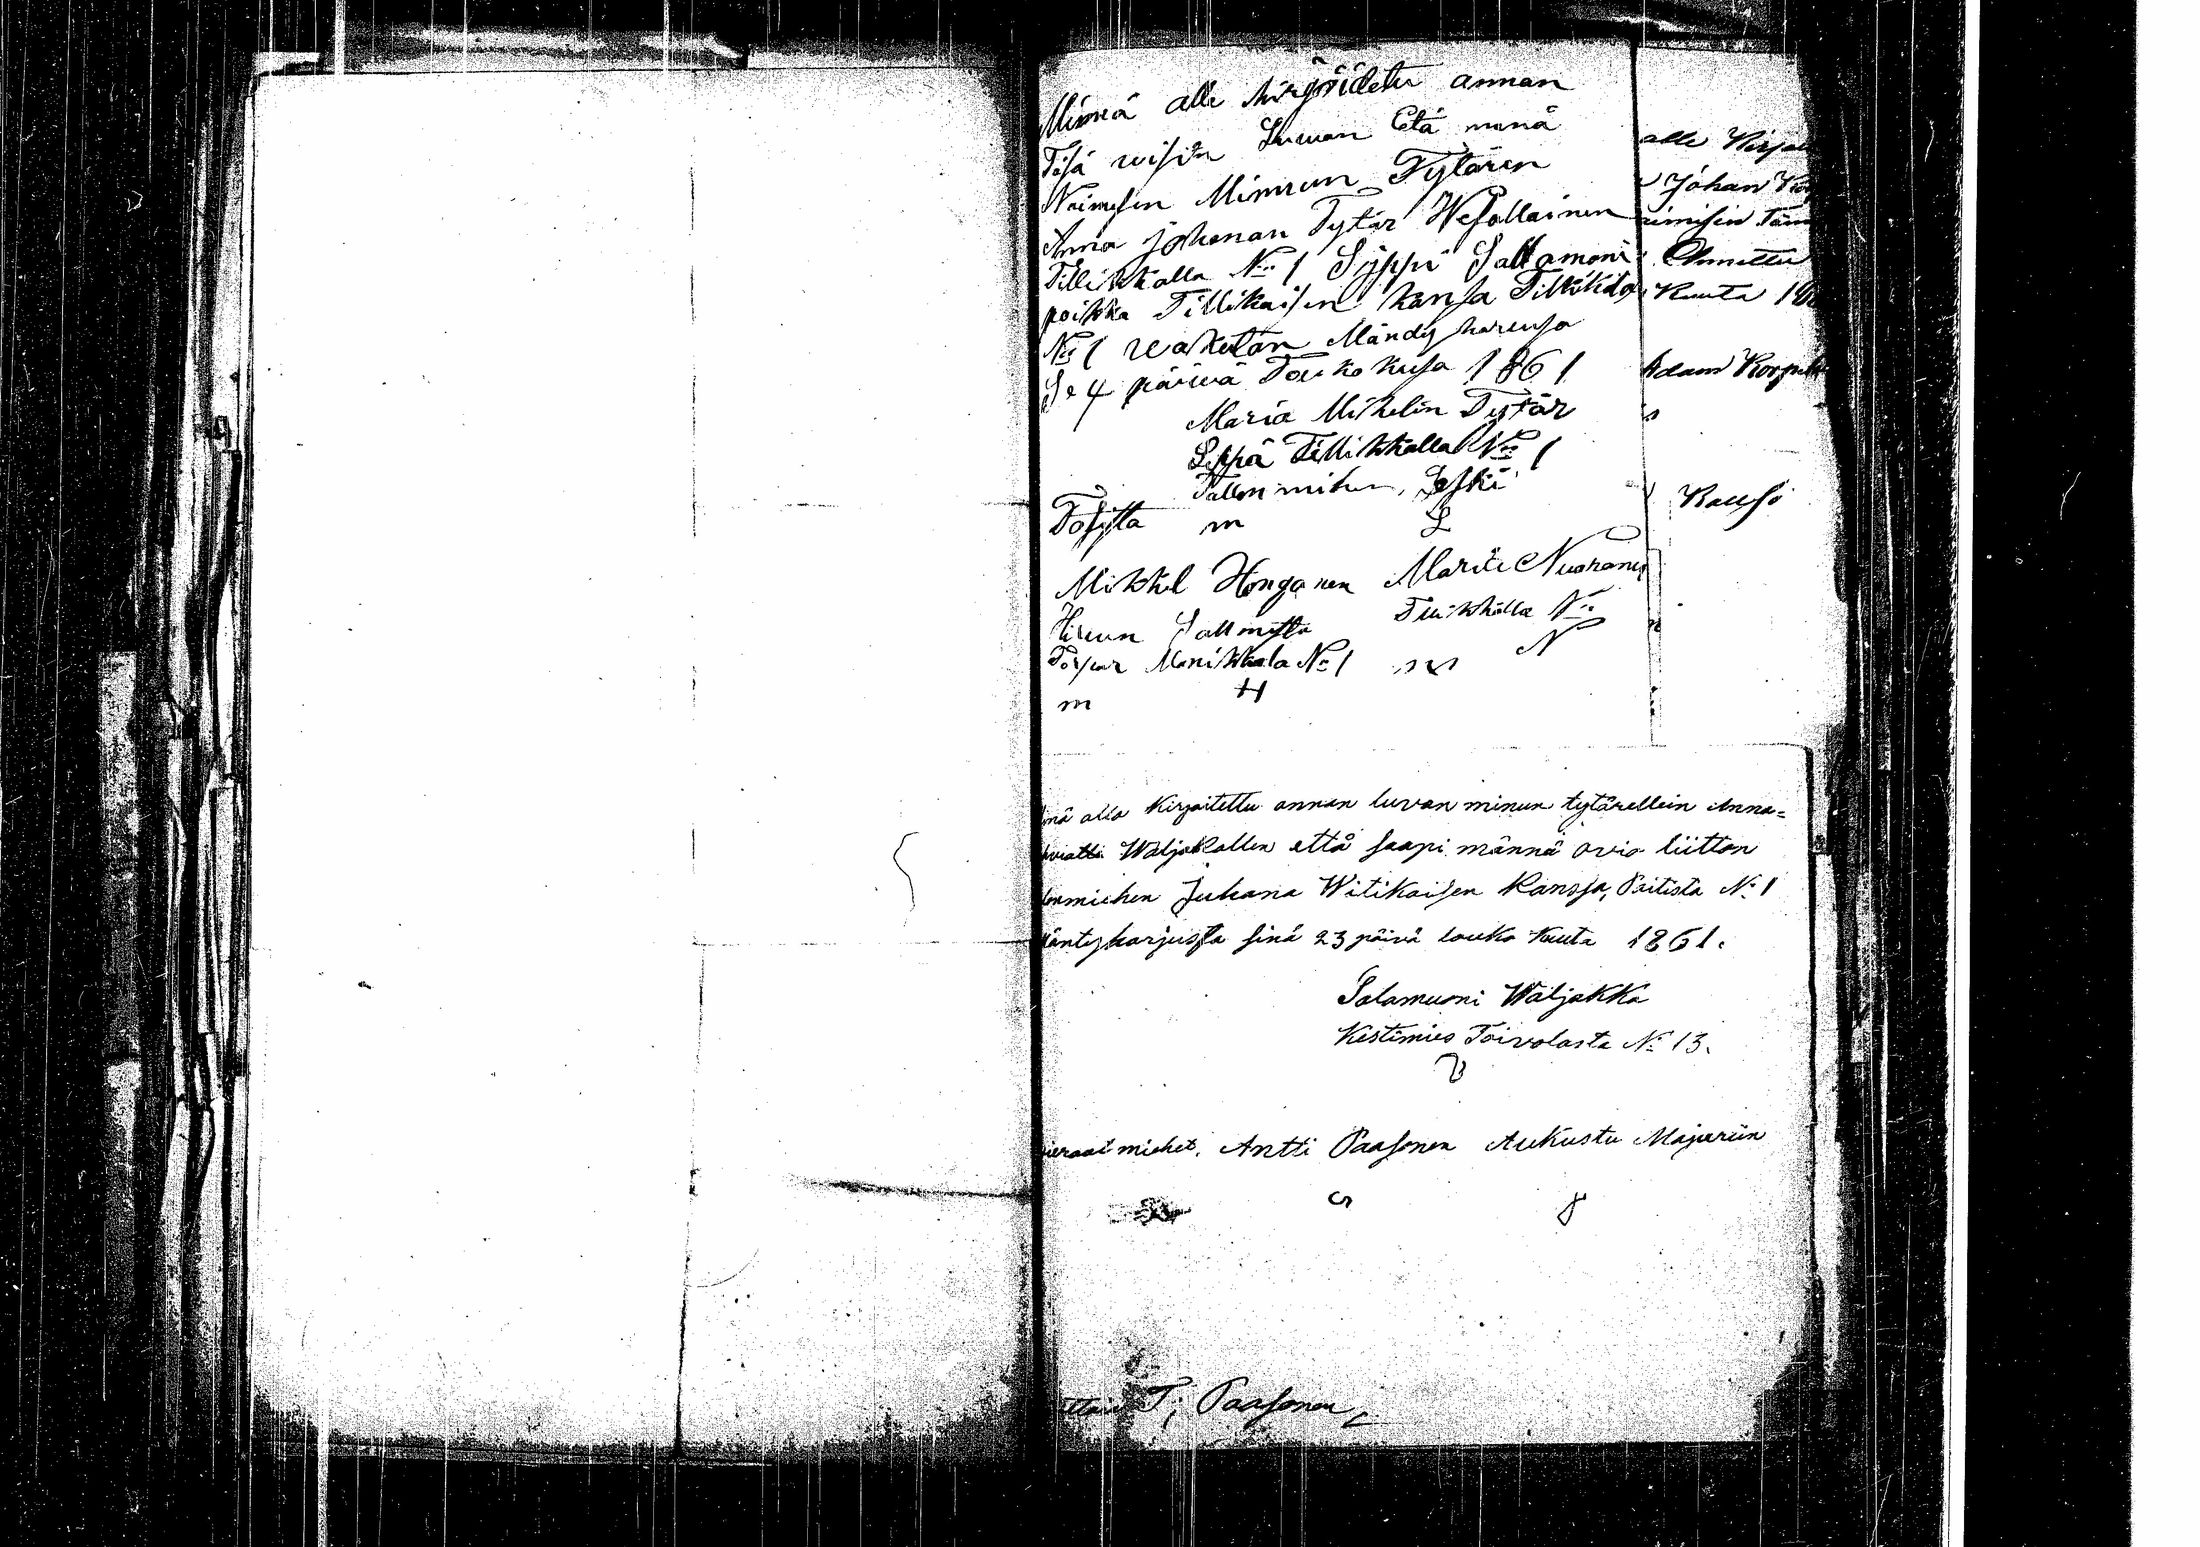 Minnä alle kirjoidetu annan
Täsä wisin Luwan Etä minä
Naimisen Minnun Tytären
Anna johanan Tytär Wesallainen
Tillikkalla No 1 Sippi Sallamoni
poikka Tillikaisen kansa Tillikkala
No 1 reaketan Mändy harcusa
Se 4 päivä Toukokusa 1861
Maria Mikelin Tytär
Seppä Tillikkalla No 1
Tallonmiken, Leski
Tosytta m L
Mikkel Hongonen Maria Nuoranen
Hirvun Salmitta Tillikkalla No
Torpar Manikkala No 1 m N
m H
alle Kirjoi
Johan Kor
nimisin Täm
Annettu
Kuuta 18
Adam Korpela
s
Kausö
inä alla Kirjoitettu annan luvan minun tytärellein Anna=
Waljakallen että saapi männä avio liitton
lonmiehen Juhana Witikaisen Kanssa, Paitista No 1
Mäntyharjusta sinä 23 päivä touko Kuuta 1861.
Salamuoni Waljakka
Kestimies Toivolasta No 13.
ieraat miehet. Antti Paasonen Aukustu Majuriin
T; Paasonen,